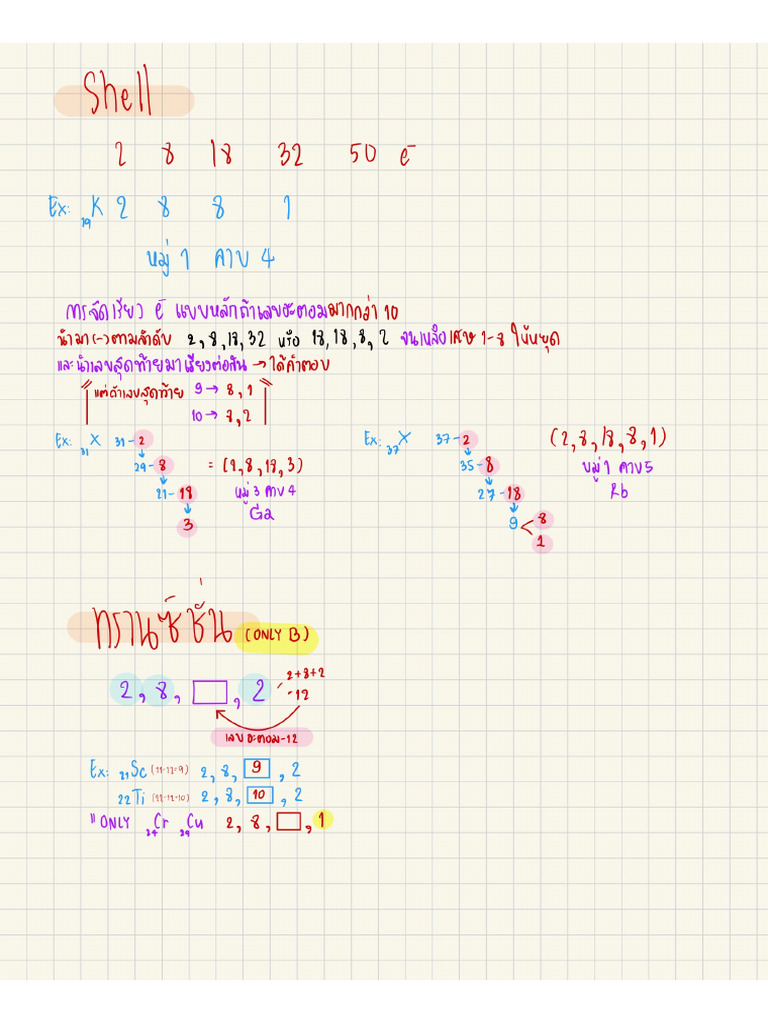 Shell
2 8 18 32 50 e⁻
Ex: ₁₉K 2 8 8 1
หมู่ 1 คาบ 4
การจัดเรียง e⁻ แบบหลักถ้าเลขอะตอมมากกว่า 10
นำมา (-) ตามลำดับ 2,8,18,32 หรือ 18,18,8,2 จนเหลือเศษ 1-8 ให้หยุด
และนำเลขสุดท้ายมาเรียงต่อกัน → ได้คำตอบ
แต่ถ้าเลขสุดท้าย 9 → 8,1
10 → 8,2
Ex: ₃₁X 31-2
29-8 = (2,8,18,3)
21-18 หมู่ 3 คาบ 4
3 Ga
Ex: ₃₇X 37-2 (2,8,18,8,1)
35-8 หมู่ 1 คาบ 5
27-18 Rb
9 < 8
1
ทรานซ์ชั่น (ONLY B)
2, 8, □, 2 2+8+2
-12
เลขอะตอม-12
Ex: ₂₁Sc (21-12=9) 2, 8, 9, 2
₂₂Ti (22-12=10) 2, 8, 10, 2
"ONLY ₂₄Cr ₂₉Cu 2, 8, □, 1